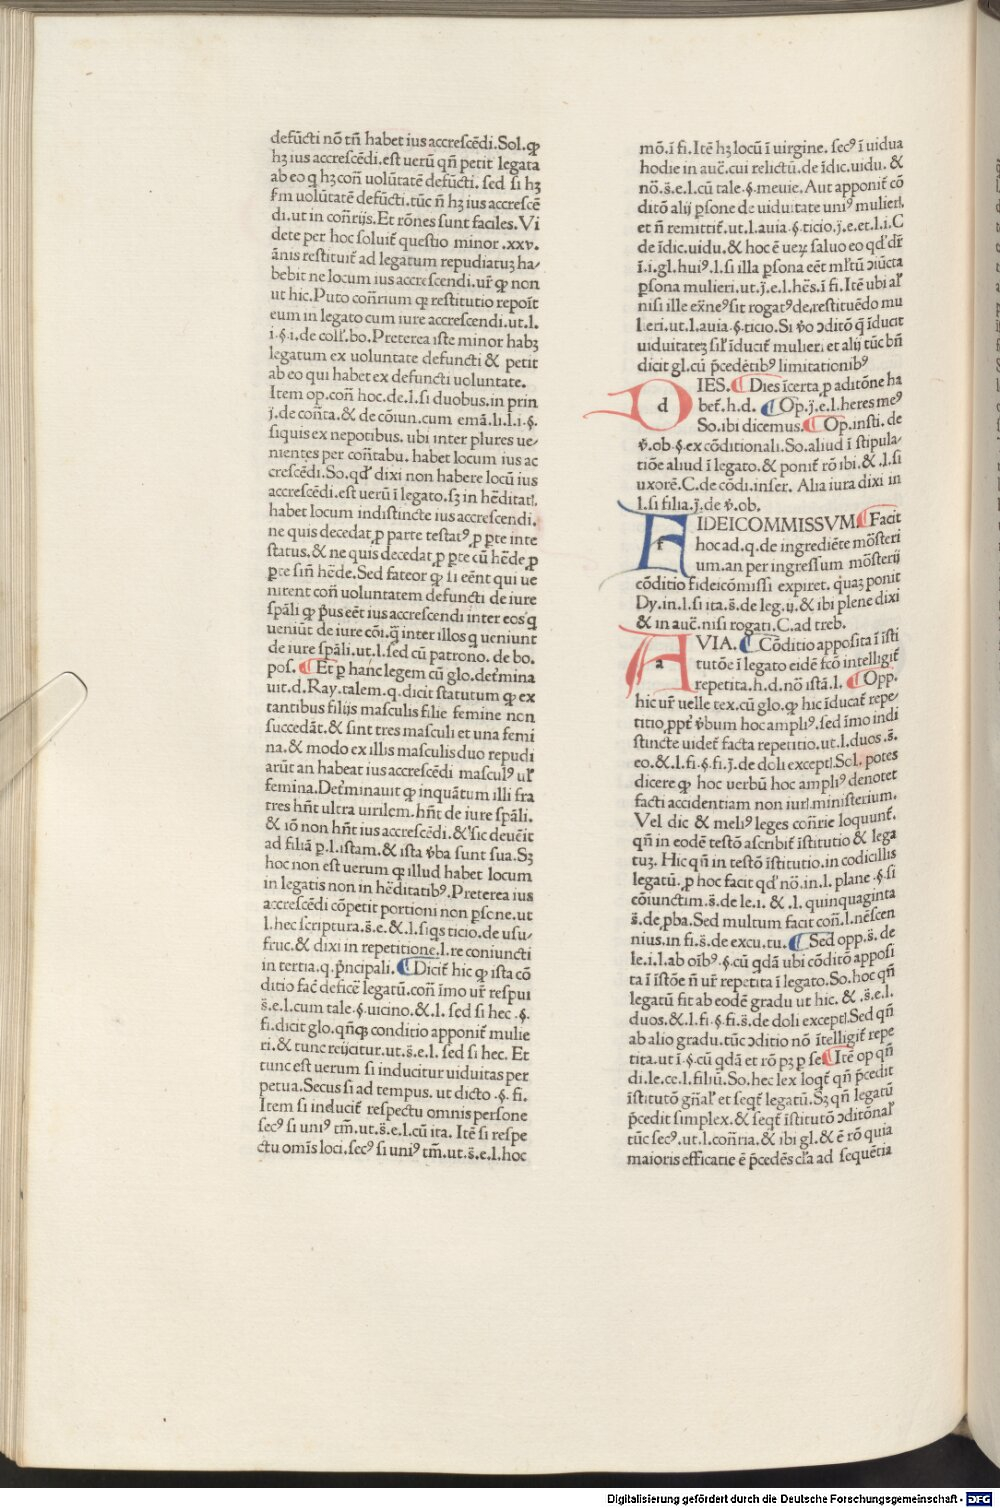 defūcti nō tñ habet ius accrescēdi. Sol. ꝙ
hꝫ ius accrescēdi. est uerū qñ petit legata
ab eo q hꝫ coñ uolūtatē defūcti. sed si hꝫ
ſm uolūtatē defūcti. tūc ñ hꝫ ius accrescē
di. ut in coñrijs. Et rōnes sunt faciles. Vi
dete per hoc soluit̃ questio minor .xxv.
ānis restituit̃ ad legatum repudiatuꝫ ha⸗
bebit ne locum ius accrescendi. ur̃ ꝙ non
ut hic. Puto coñrium ꝙ restitutio repoīt
eum in legato cum iure accrescendi. ut. l.
i. §. i. de coll̃. bo. Preterea iste minor habꝫ
legatum ex uoluntate defuncti & petit
ab eo qui habet ex defuncti uoluntate.
Item op. coñ hoc. de. l. si duobus. in prin
j. de coñta. & de cōiun. cum emā. li. l. i. §.
siquis ex nepotibus. ubi inter plures ue⸗
nientes per coñtabu. habet locum ius ac
crescēdi. So. qd̃ dixi non habere locū ius
accrescēdi. est uerū ī legato. sꝫ in hēditatꝭ.
habet locum indistincte ius accrescendi.
ne quis decedat ꝓ parte testatꝰ ꝓ ꝑte inte
status. & ne quis decedat ꝓ ꝑte cū hēde ꝓ
ꝑte siñ hēde. Sed fateor ꝙ si eēnt qui ue
nirent coñ uoluntatem defuncti de iure
spāli ꝙ p̄us eēt ius accrescendi inter eos q̄
ueniūt de iure cōi. q̄ inter illos q ueniunt
de iure spāli. ut. l. sed cū patrono. de bo.
pos. ¶ Et ꝑ hanc legem cū glo. det̃mina
uit. d. Ray. talem. q. dicit statutum ꝙ ex
tantibus filijs masculis filie femine non
succedāt. & sint tres masculi et una femi
na. & modo ex illis masculis duo repudi
arūt an habeat ius accrescēdi masculꝰ ul̃
femina. Det̃minauit ꝙ inquātum illi fra
tres hñt ultra uirilem. hñt de iure spāli.
& iō non hñt ius accrescēdi. & sic deuēit
ad filiā ꝑ. l. istam. & ista v̄ba sunt sua. Sꝫ
hoc non est uerum ꝙ illud habet locum
in legatis non in hēditatibꝰ. Preterea ius
accrescēdi cōpetit portioni non ꝑsone. ut
l. hec scriptura. s̄. e. & . l. siqs ticio. de usu⸗
fruc. & dixi in repetitione. l. re coniuncti
in tertia. q. p̄ncipali. ¶ Dicit̃ hic ꝙ ista cō
ditio fac̃ deficē legatū. coñ īmo ur̃ respui
s̄. e. l. cum tale. §. uicino. & . l. sed si hec . §.
fi. dicit glo. qñqꝫ conditio apponit̃ mulie
ri. & tunc reijcitur. ut. s̄. e. l. sed si hec. Et
tunc est uerum si inducitur uiduitas per
petua. Secus si ad tempus. ut dicto . §. fi.
Item si inducit̃ respectu omnis persone
secꝰ si uniꝰ tm̄. ut. s̄. e. l. cū ita. Itē si respe
ctu omīs loci. secꝰ si uniꝰ tm̄. ut. s̄. e. l. hoc
mō. ī fi. Itē hꝫ locū ī uirgine. secꝰ ī uidua
hodie in auc̃. cui relictū. de īdic. uidu. &
nō. s̄. e. l. cū tale. §. meuie. Aut apponit̃ cō
ditō alij ꝑsone de uiduitate uniꝰ mulierꝭ.
et ñ remittit̃. ut. l. auia. §. ticio. j. e. et. l. i. C
de īdic. uidu. & hoc ē ueꝝ saluo eo qd̃ dr̃
ī. i. gl. huiꝰ. l. si illa ꝑsona eēt ml̃tū ɔiūcta
ꝑsona mulieri. ut. j. e. l. hēs. ī fi. Itē ubi al̃
nisi ille ex̄neꝰ sit rogatꝰ de. restituēdo mu
lieri. ut. l. auia. §. ticio. Si v̄o ɔditō q̄ īducit
uiduitateꝫ sil̃ īducit̃ mulieri et alij tūc bñ
dicit gl. cū p̄cedētibꝰ limitationibꝰ
DIES. ¶ Dies īcerta ꝓ aditōne ha
bet̃. h. d. ¶ Op. j. e. l. heres meꝰ
So. ibi dicemus. ¶ Op. insti. de
v̄. ob. §. ex cōditionali. So. aliud ī stipula⸗
tiōe aliud ī legato. & ponit̃ rō ibi. & . l. si
uxorē. C. de cōdi. inser. Alia iura dixi in
l. si filia. j. de v̄. ob.
FIDEICOMMISSVM. ¶ Facit
hoc ad. q. de ingrediēte mōsteri
um. an per ingressum mōsterij
cōditio fideicōmissi expiret. quaꝫ ponit
Dy. in. l. si ita. s̄. de leg. ij. & ibi plene dixi
& in auc̃. nisi rogati. C. ad treb.
AVIA. ¶ Cōditio apposita ī īsti
tutōe ī legato eidē fcō intelligit̃
repetita. h. d. nō istā. l. ¶ Opp.
hic ur̃ uelle tex. cū glo. ꝙ hic īducat̃ repe⸗
titio ꝓpt̃ v̄bum hoc ampliꝰ. sed īmo indi
stincte uidet̃ facta repetitio. ut. l. duos. s̄.
eo. & . l. fi. §. fi. j. de doli exceptꝭ. Sol. potes
dicere ꝙ hoc uerbū hoc ampliꝰ denotet
facti accidentiam non iurꝭ. ministerium.
Vel dic & meliꝰ leges coñrie loquunt̃.
qñ in eodē testō ascribit̃ īstitutio & lega
tuꝫ. Hic qñ in testō īstitutio. in codicillis
legatū. ꝓ hoc facit qd̃ nō. in. l. plane . §. si
cōiunctim. s̄. de le. i. & . l. quinquaginta
s̄. de. ꝓba. Sed multum facit coñ. l. nēscen
nius. in fi. s̄. de excu. tu. ¶ Sed opp. s̄. de
le. i. l. ab oībꝰ. §. cū qdā ubi cōditō apposi
ta ī īstōe ñ ur̃ repetita ī legato. So. hoc qñ
legatū fit ab eodē gradu ut hic. & . s̄. e. l.
duos. & . l. fi. §. fi. s̄. de doli exceptꝭ. Sed qñ
ab alio gradu. tūc ɔditio nō ītelligit̃ repe
tita. ut ī. §. cū qdā et rō pꝫ ꝑ se. ¶ Itē op qñ
di. le. ce. l. filiū. So. hec lex loqt̃ qñ p̄cedit
īstitutō gñal̃ et seqt̃ legatū. Sꝫ qñ legatū
p̄cedit simplex. & seqt̃ īstitutō ɔditōnal̃
tūc secꝰ. ut. l. coñria. & ibi gl. & ē rō quia
maioris efficatie ē p̄cedēs cl̃a ad sequētia
Digitalisierung gefördert durch die Deutsche Forschungsgemeinschaft - DFG